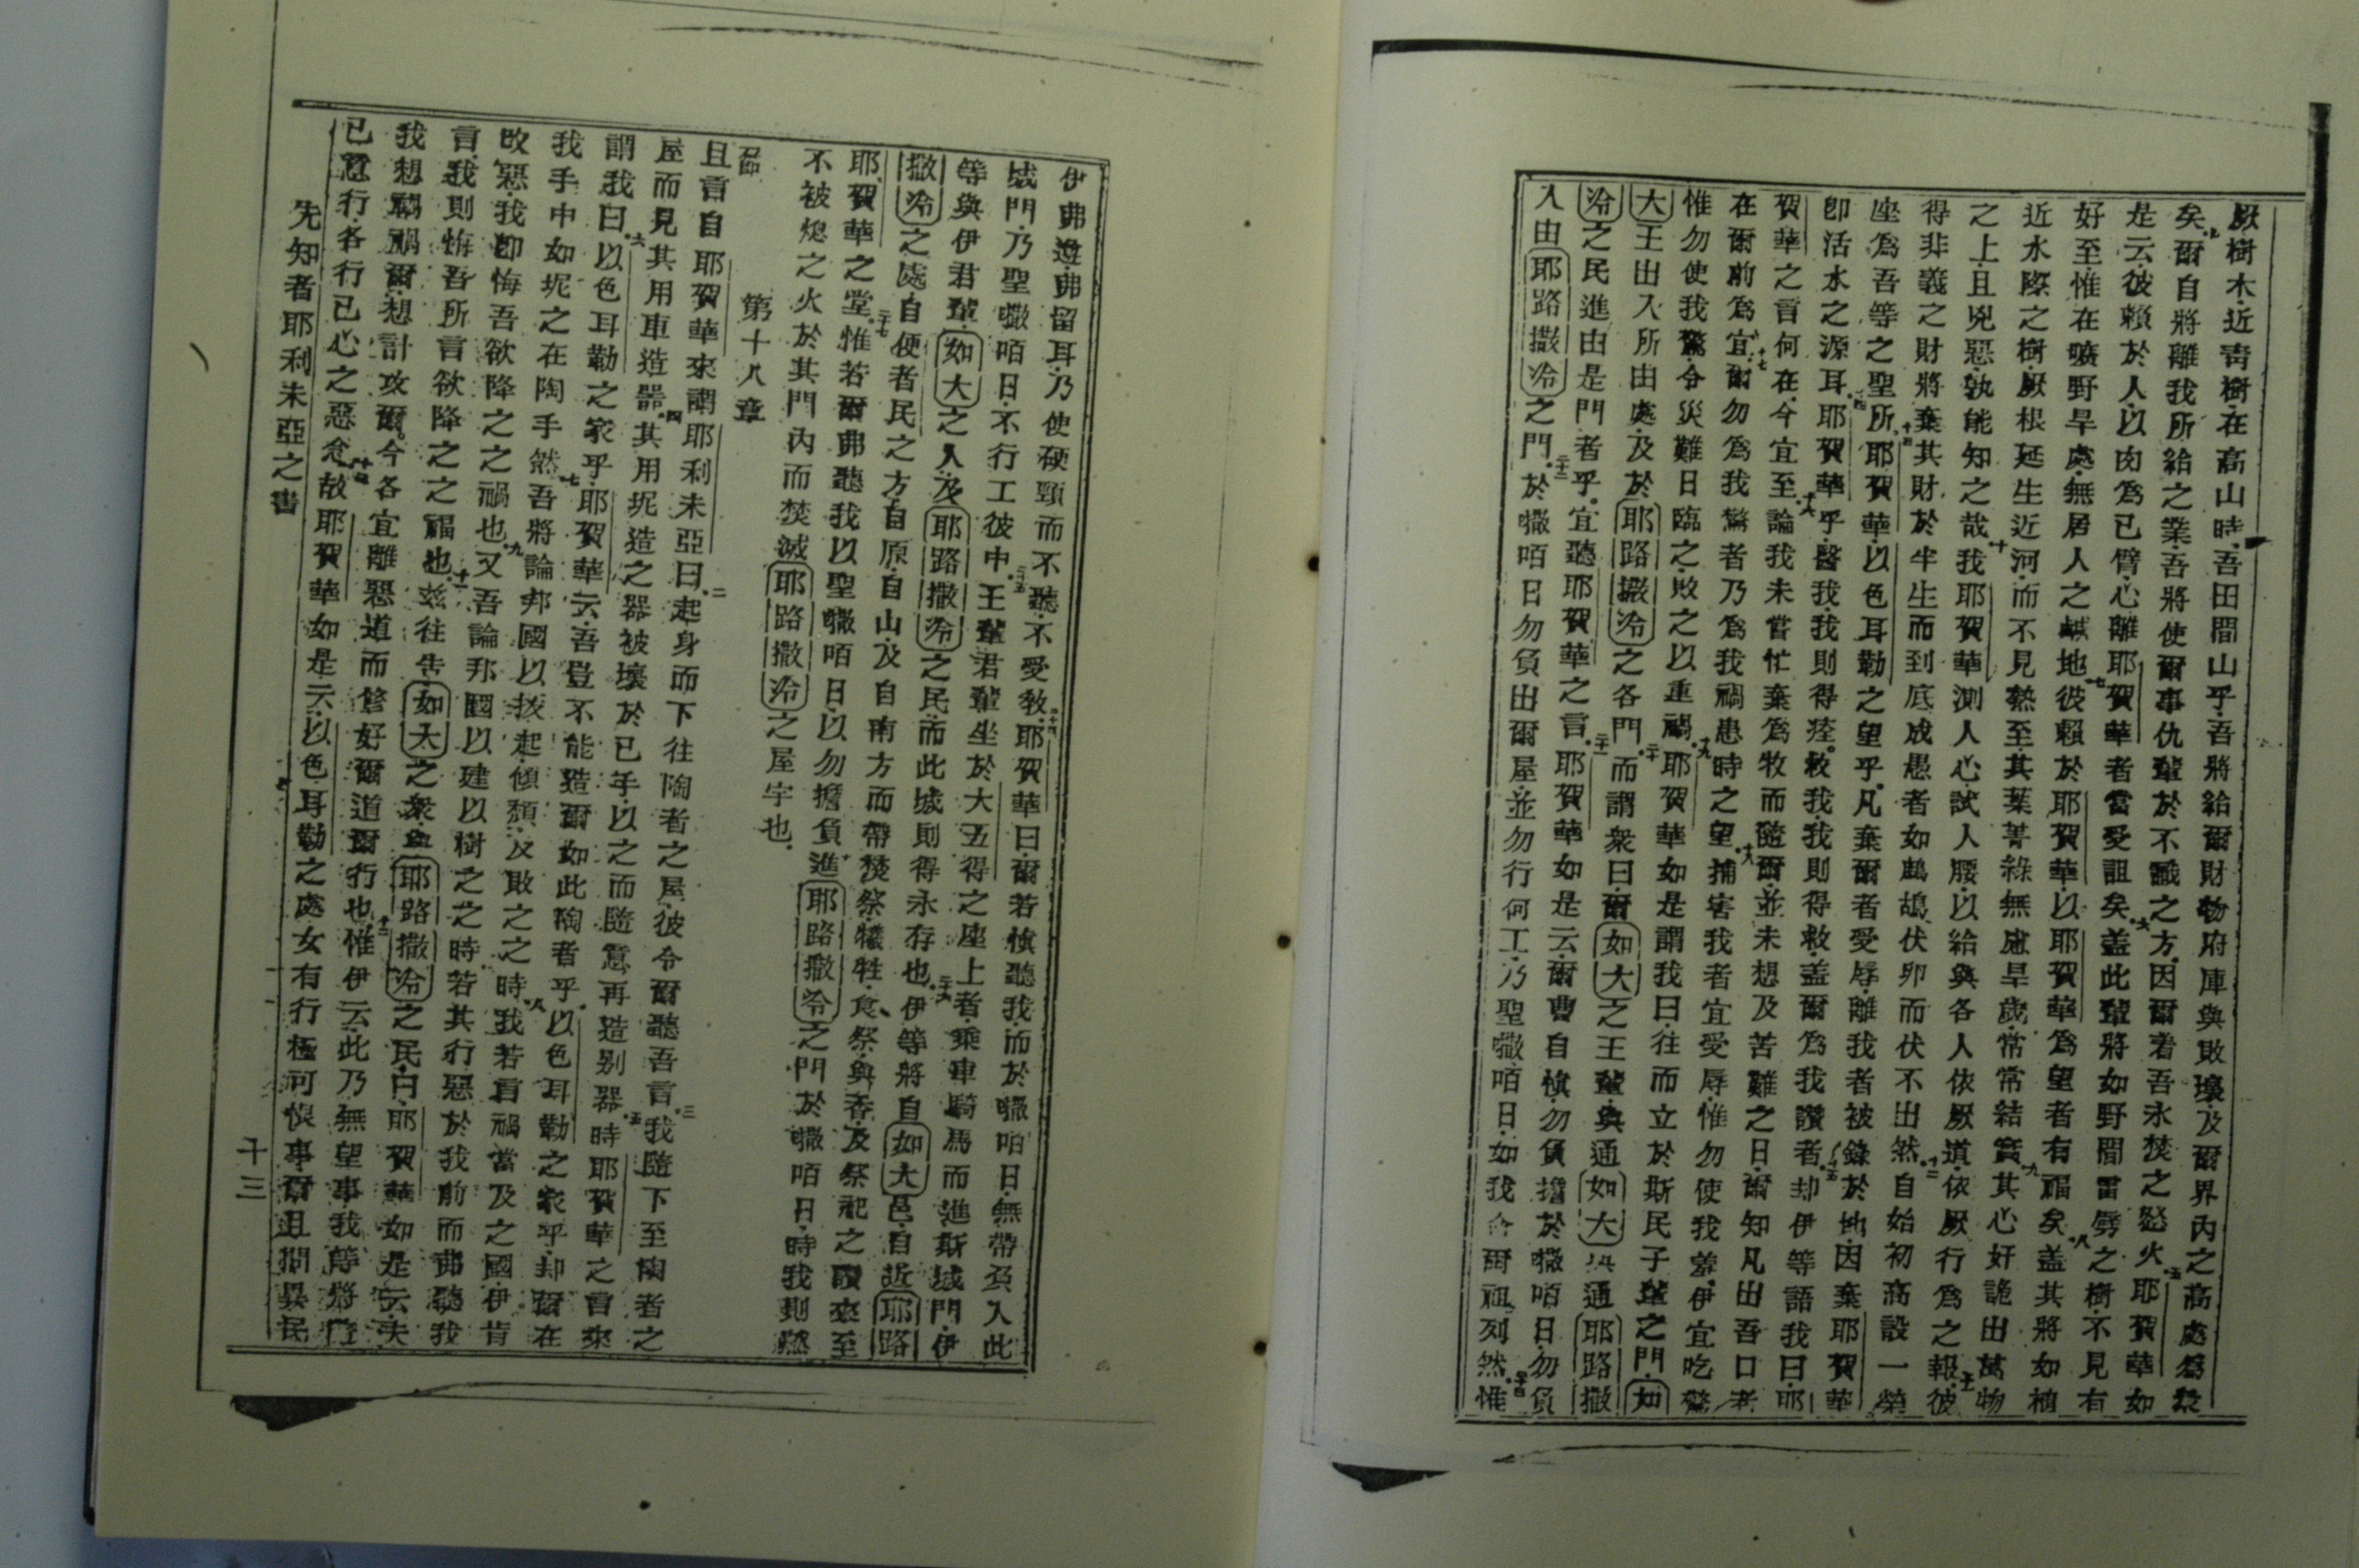 厥樹木近靑樹在高山時吾田間山乎吾將給爾財物府庫與敗壞及爾界內之高處爲衆
矣爾自將離我所給之業吾將使爾事仇輩於不識之方因爾着吾永焚之怒火耶賀華如
是云彼賴於人以肉爲己臂心離耶賀華者當受詛矣盖此輩將如野間雷劈之樹不見有
好至惟在曠野旱處無居人之鹹地彼賴於耶賀華以耶賀華爲望者有福矣盖其將如植
近水際之樹厥根延生近河而不見熱至其葉菁綠無慮旱歲常常結實其心好詭出萬物
之上且兇惡孰能知之哉我耶賀華測人心試人腰以給與各人依厥道依厥行爲之報彼
得非義之財將棄其財於半生而到底成愚者如鷓鴣伏卵而伏不出然自始初高設一榮
座爲吾等之聖所耶賀華以色耳勒之望乎凡棄爾者受辱離我者被錄於地因棄耶賀華
卽活水之源耳耶賀華乎醫我我則得痊救我我則得救盖爾爲我讚者却伊等語我曰耶
賀華之言何在今宜至論我未嘗忙棄爲牧而隨爾並未想及苦難之日爾知凡出吾口者
在爾前爲宜爾勿爲我驚者乃爲我禍患時之望捕害我者宜受辱惟勿使我羞伊宜吃驚
惟勿使我驚令災難日臨之敗之以重禍耶賀華如是謂我曰往而立於斯民子輩之門如
大王出入所由處及於耶路撒冷之各門而謂衆曰爾如大之王輩與通如大與通耶路撒
冷之民進由是門者乎宜聽耶賀華之言耶賀華如是云爾曹自愼勿負擔於㘔咟日勿負
入由耶路撒冷之門於㘔咟日勿負出爾屋並勿行何工乃聖㘔咟日如我令爾祖列然惟
伊弗遵弗留耳乃使硬頸而不聽不受敎耶賀華曰爾若愼聽我而於㘔咟日無帶負入此
城門乃聖㘔咟日不行工彼中王輩君輩坐於大五得之座上者乘車騎馬而進斯城門伊
等與伊君輩如大之人及耶路撒冷之民而此城則得永存也伊等將自如大邑自近耶路
撒冷之處自便者民之方自原自山及自南方而帶焚祭犧牲食祭與香及祭祀之讚來至
耶賀華之堂惟若爾弗聽我以聖㘔咟日以勿擔負進耶路撒冷之門於㘔咟日時我則燃
不被熄之火於其門內而焚滅耶路撒冷之屋宇也
第十八章
且言自耶賀華來謂耶利未亞曰起身而下往陶者之屋彼令爾聽吾言我隨下至陶者之
屋而見其用車造器其用坭造之器被壞於已手以之而隨意再造别器時耶賀華之言來
謂我曰以色耳勒之家乎耶賀華云吾豈不能造爾如此陶者乎以色耳勒之家乎却爾在
我手中如坭之在陶手然吾將論邦國以拔起傾頹及敗之之時我若言禍當及之國伊肯
改惡我卽悔吾欲降之之禍也又吾論邦國以建以樹之之時若其行惡於我前而弗聽我
言我則悔吾所言欲降之之福也玆往告如大之衆與耶路撒冷之民曰耶賀華如是云夫
我想禍爾想計攻爾今各宜離惡道而修好爾道爾行也惟伊云此乃無望事我等將隨
已意行各行已心之惡念故耶賀華如是云以色耳勒之處女有行極可恨事爾且問異民
先知者耶利未亞之書
十三